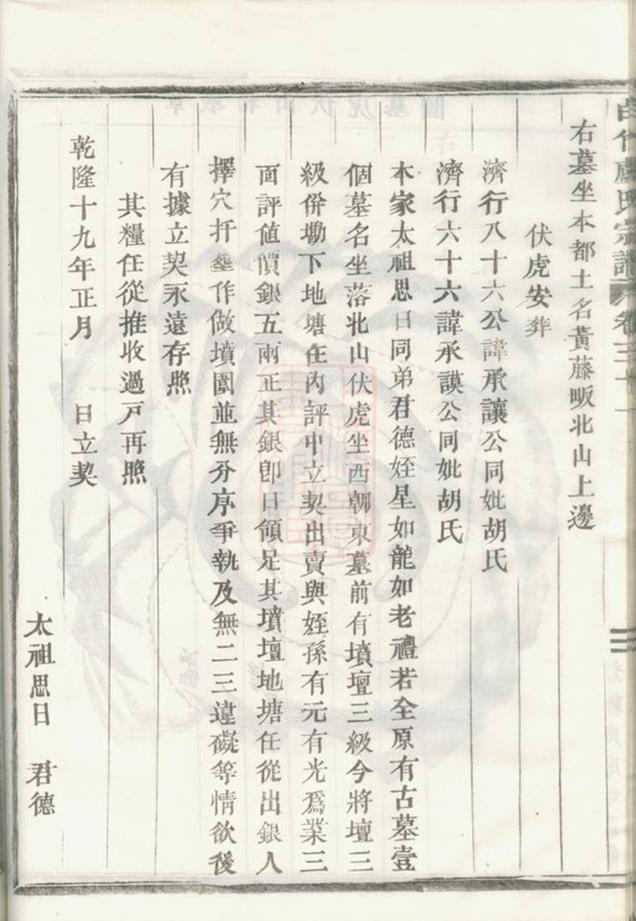 右墓坐本都土名黃藤畈北山上邊
伏虎安葬
濟行八十六公諱承讓公同妣胡氏
濟行六十六諱承謨公同妣胡氏
本家太祖思日同弟君德姪星如龍如老禮若全原有古墓壹
個墓名坐落北山伏虎坐西朝東墓前有墳壇三級今將壇三
級併塝下地塘在內評中立契出賣與姪孫有元有光爲業三
面評値價銀五兩正其銀卽日領足其墳壇地塘任從出銀人
擇穴扦塟作做墳圍並無分序爭執及無二三違礙等情欲後
有據立契永遠存照
其糧任從推收過戸再照
乾隆十九年正月 日立契
太祖思日 君德